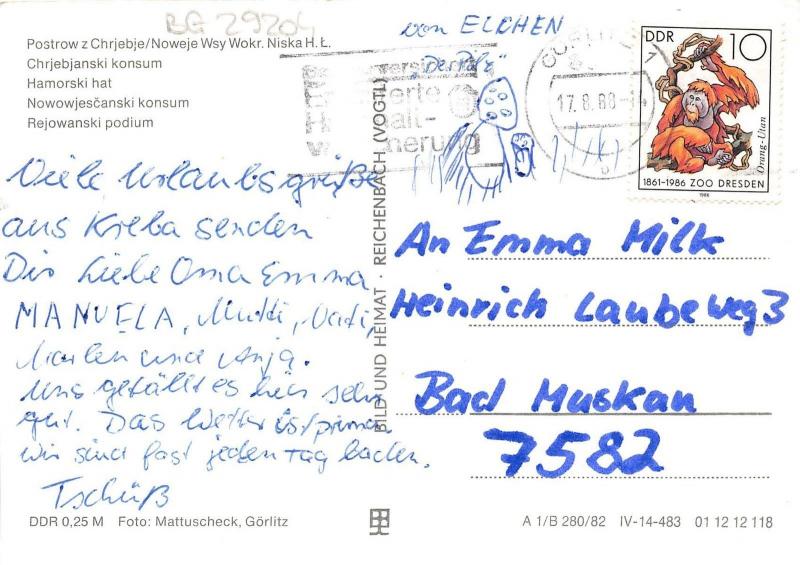 BG 29204
Postrow z Chrjebje/Noweje Wsy Wokr. Niska H. Ł.
Chrjebjanski konsum
Hamorski hat
Nowowjesčanski konsum
Rejowanski podium
Viele Urlaubsgrüße
aus Kreba senden
Dir liebe Oma Emma
MANUELA, Mutti, Vati,
Marlen und Anja.
Uns gefällt es hier sehr
gut. Das Wetter ist prima
wir sind fast jeden Tag baden.
Tschüß
DDR 0,25 M Foto: Mattuscheck, Görlitz
BILD UND HEIMAT · REICHENBACH (VOGTL)
von ELCHEN
"Der Pilz"
17.8.88
DDR 10
Orang-Utan
1861-1986 ZOO DRESDEN
1986
An Emma Milk
Heinrich Laubeweg 3
Bad Muskau
7582
A 1/B 280/82 IV-14-483 01 12 12 118